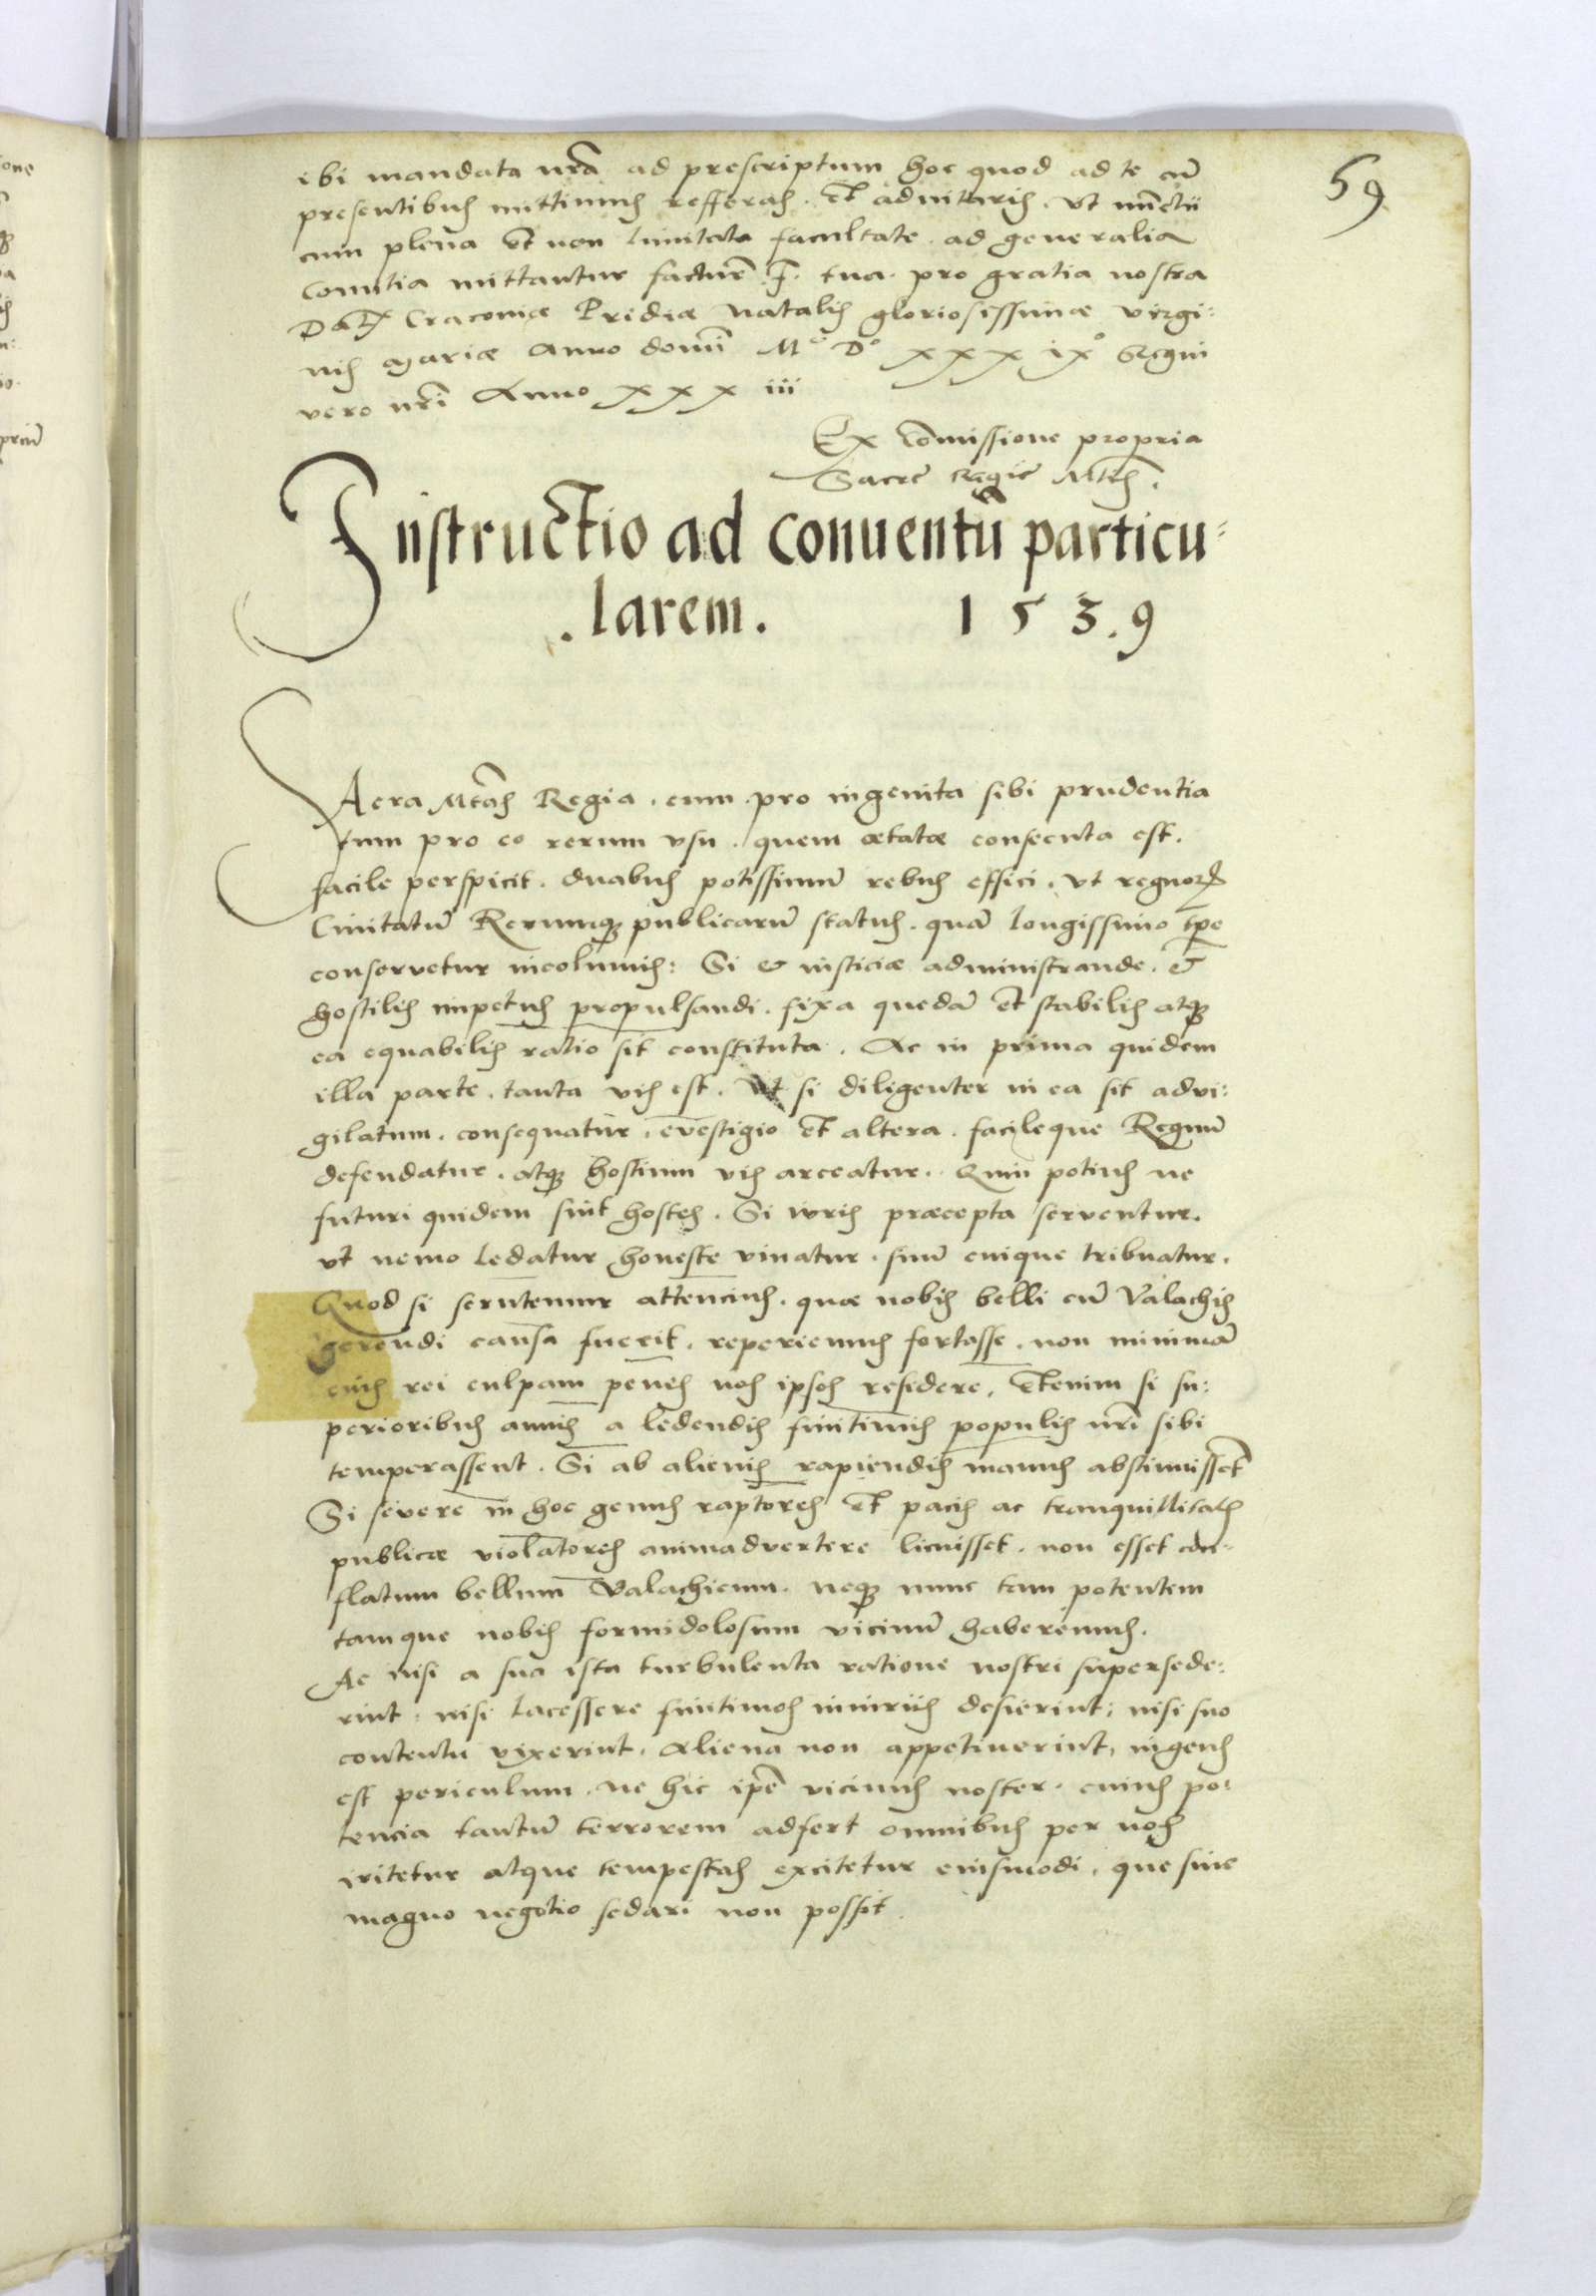 59
ibi mandata nrã ad prescriptum hoc quod ad te cũ
presentibus mittimus refferas. Et adnitaris. Vt nunctii
cum plena Et non limitata facultate. ad generalia
Comitia mittantur factur̃ F. tua. pro gratia nostra
Dat Cracoviæ Pridiæ Natalis gloriosissimæ virgi:
nis Mariæ Anno domi M° D° xxx ix° Regni
vero nrĩ Anno xxx iii
Ex Comissione propria
Sacre Regie Mtis.
Instructio ad conuentũ particu-
.larem. 1 5 3 . 9
SAcra Mtas Regia. cum pro ingenita sibi prudentia
tum pro eo rerum vsu. quem ætate consecuta est.
facile perspicit. duabus potissimũ rebus effici. Vt regnorꝝ
Ciuitatũ Rerumqꝫ publicarũ status. quã longissimo tpe
conservetur incolumis: Si & iusticiæ administrande. &
hostilis impetus propulsandi. fixa quedã Et stabilis atqꝫ
ea equabilis ratio sit constituta. Ac in prima quidem
illa parte. tanta vis est. Vt si diligenter in ea sit advi:
gilatum. consequatur. evestigio Et altera. facileque Regnũ
defendatur. atqꝫ hostium vis arceatur. Quin potius ne
futuri quidem sint hostes. Si iuris præcepta serventur.
vt nemo ledatur honeste vivatur. suũ cuique tribuatur.
Quod si scrutemur attencius. quæ nobis belli cũ Valachis
gerendi causa fuerit. reperiemus fortasse. non minimã
eius rei culpam penes nos ipsos residere. Etenim si su:
perioribus annis a ledendis finitimis populis nrĩ sibi
temperassent. Si ab alienis rapiendis manus abstinuissẽt
Si severe in hoc genus raptores Et pacis ac tranquillitatis
publicæ violatores animadvertere licuisset. non esset con-
flatum bellum Valachicum. neqꝫ nunc tam potentem
tamque nobis formidolosum vicinũ haberemus.
Ac nisi a sua ista turbulenta ratione nostri supersede:
rint. nisi lacessere finitimos iniuriis desierint; nisi suo
contentu vixerint. aliena non appetiuerint, ingens
est periculum. ne hic ipẽ vicinus noster. cuius po:
tencia tantũ terrorem adfert omnibus per nos
iritetur atque tempestas excitetur eiusmodi. que sine
magno negotio sedari non possit.